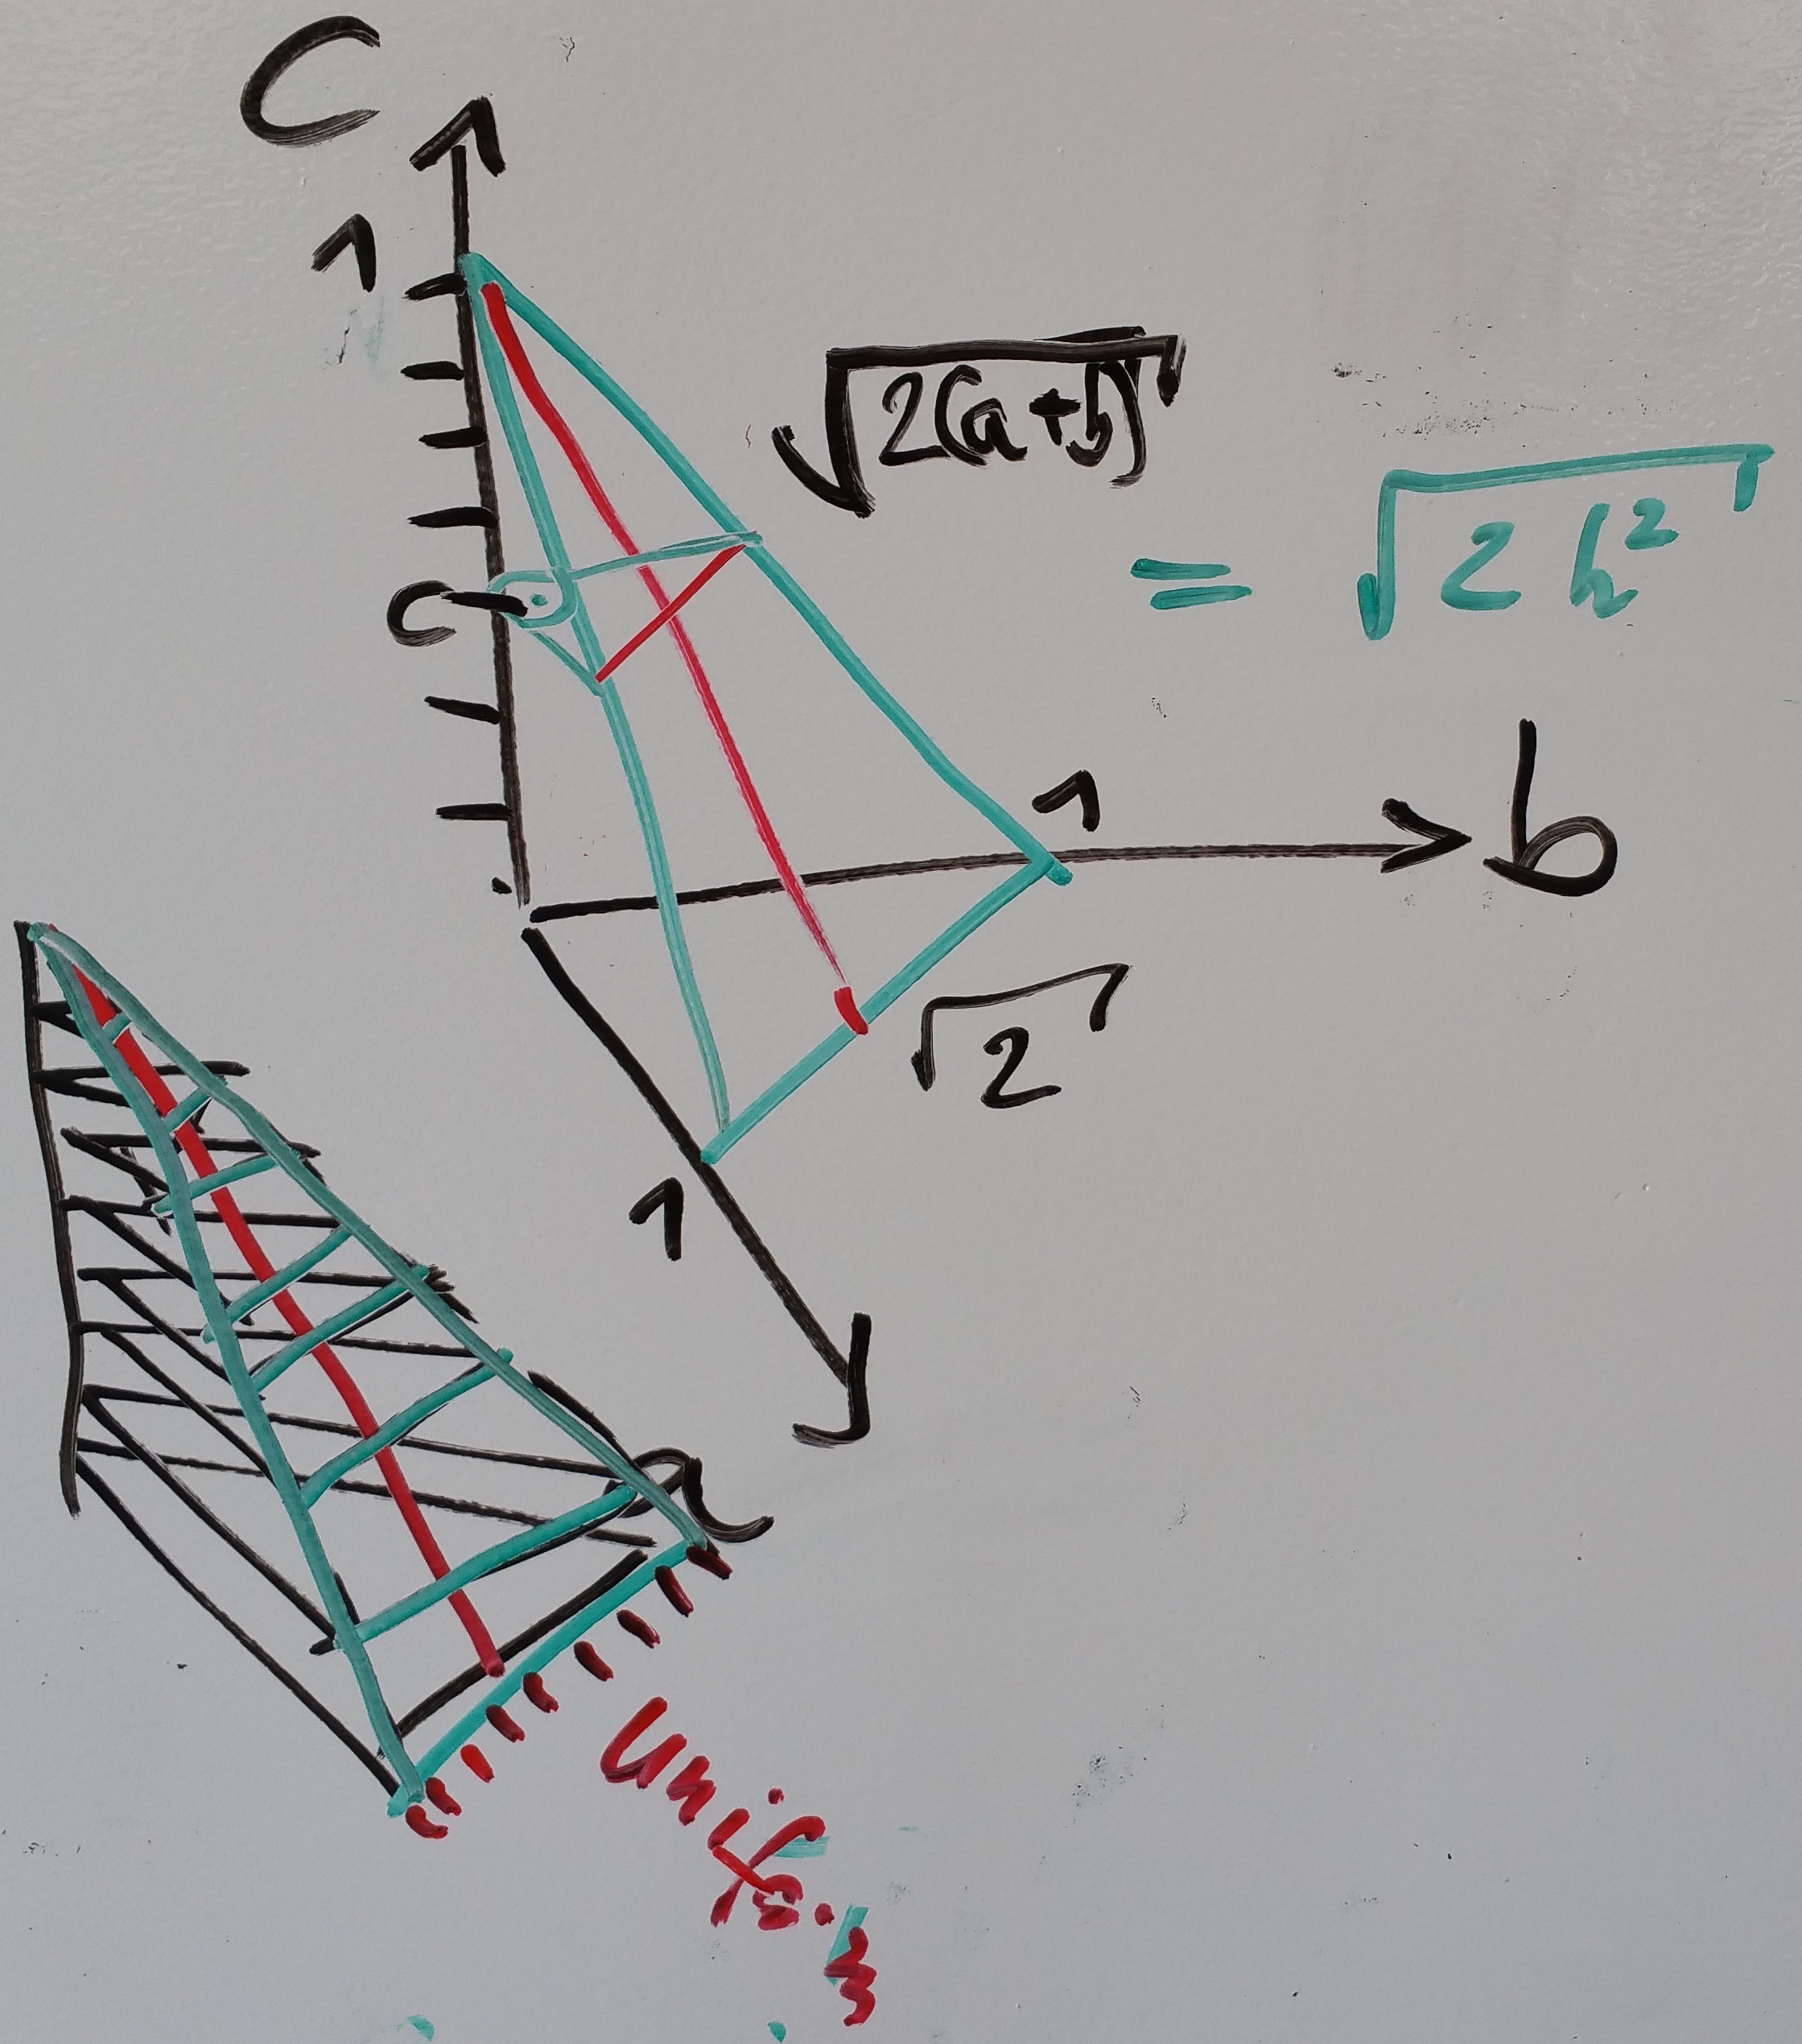 C
1
√2(a+b)
= √2h²
c
1
b
√2
1
a
uniform